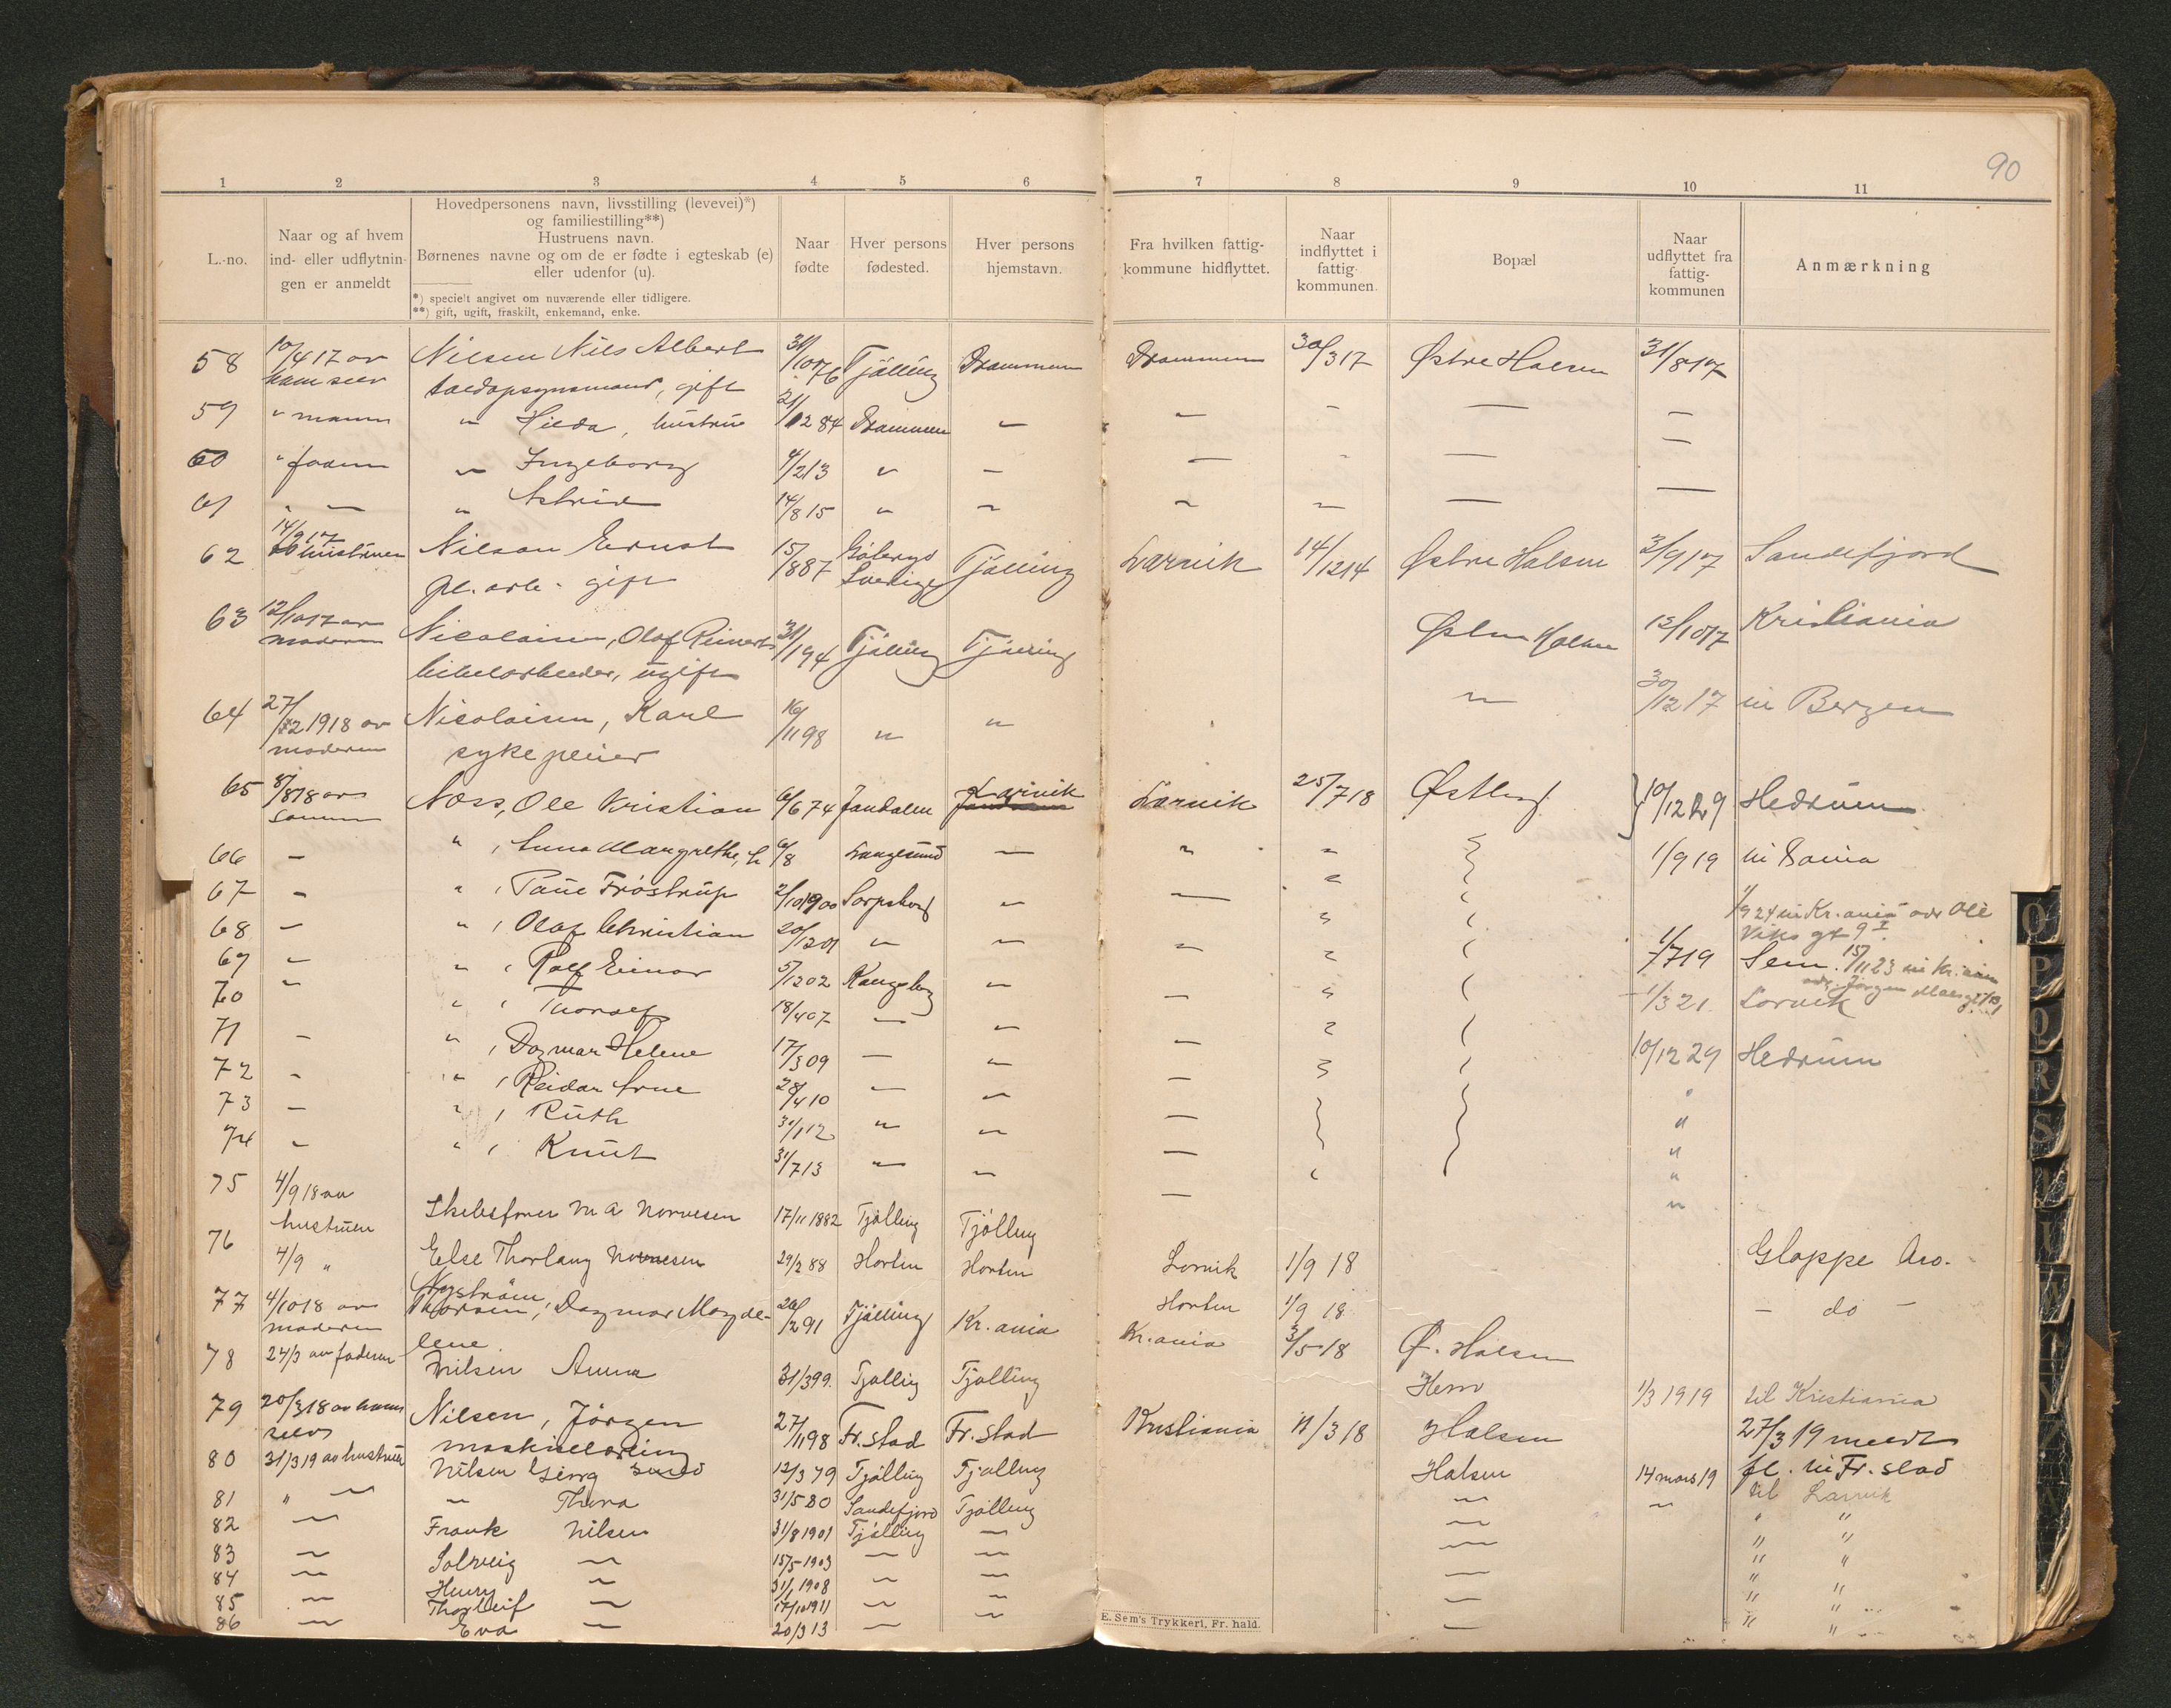 90
1 2 3 4 5 6 7 8 9 10 11
L.-no.
Naar og af hvem
ind- eller udflytnin-
gen er anmeldt
Hovedpersonens navn, livsstilling (levevei)*)
og familiestilling**)
Hustruens navn.
Børnenes navne og om de er fødte i egteskab (e)
eller udenfor (u).
*) specielt angivet om nuværende eller tidligere.
**) gift, ugift, fraskilt, enkemand, enke.
Naar
fødte
Hver persons
fødested.
Hver persons
hjemstavn.
Fra hvilken fattig-
kommune hidflyttet.
Naar
indflyttet i
fattig-
kommunen.
Bopæl
Naar
udflyttet fra
fattig-
kommunen
Anmærkning
58 10/4 17 av Nilsen Nils Albert 31/10 76 Tjølling Drammen Drammen 30/3 17 Østre Halsen 31/8 17
ham selv gift
59 " mann " Hilda, hustru 21/12 84 Drammen " " - — —
60 " faderen " Ingeborg 4/2 13 " — — - — —
61 " — " Astrid 14/8 15 " — " — — —
62 14/9 17 Nilsen Ernst 15/8 87 Gøteborg Tjølling Larvik 14/12 14 Østre Halsen 3/9 17 Sandefjord
av hustruen gift Sverige
63 12/10 17 av Nicolaisen, Olaf Reinert 31/1 94 Tjølling Tjølling Østre Halsen 12/10 17 Kristiania
moderen ugift
64 27/12 1918 av Nicolaisen, Karl 16/11 98 " " " 30/12 17 til Bergen
moderen sykepleier
65 8/8 18 av Næss, Ole Kristian 6/6 74 Larvik Larvik 25/7 18 Østby 10/12 29 Hedrum
samme
66 — " , Anna Margrethe, h 6/8 Langesund — " " 1/9 19 til
67 - " , Frøstrup 2/10 1900 Sarpsborg — —
68 — " , Olaf Christian 20/12 01 " — 1/9 24 til Kr.ania adr Ole
Viks gt 9 I
69 — " , Rolf Einar 5/12 02 Kongsberg — — 1/7 19 Sem. 15/11 23 til Kr.ania
adr. Jørgen
70 — " , Thorleif 18/4 07 — — — 1/3 21 Larvik
71 - " , Dagmar Helene 17/3 09 — — — 10/12 29 Hedrum
72 - " , Reidar Arne 28/4 10 — — — "
73 — " , Ruth 31/1 12 " — — "
74 - " , Knut 31/7 13 — — — "
75 4/9 18 av M A Norvesen 17/11 1882 Tjølling Tjølling Larvik 1/9 18 Gloppe Aro.
hustruen
76 4/9 " Else Thorlaug Norvesen 29/2 88 Horten Horten Horten 1/9 18 — do —
77 4/10 18 av Nystrøm
moderen Thorsen, Dagmar Magde- 26/2 91 Tjølling Kr.ania Kr.ania 3/5 18 Ø. Halsen
lene
78 24/3 av faderen Nilsen Anna 31/3 99. Tjølling Tjølling Hem 1/3 1919 til Kristiania
79 20/3 18 av ham Nilsen, Jørgen 27/11 98 Fr.stad Fr.stad Kristiania 11/3 18 Halsen 27/3 19 meldt
selv fl. til Fr.stad
80 31/3 19 av hustruen Nilsen Georg smed 12/3 79 Tjølling Tjølling Halsen 14 mars 19 til Larvik
81 " — " Thora 31/5 80 Sandefjord Tjølling — — " "
82 — Frank Nilsen 31/8 1901 Tjølling — — " "
83 — Solveig — 15/5 1903 — — — " "
84 — Henry — 31/1 1908 — — — " "
85 — Thorleif — 17/10 1911 — — — " "
86 — Eva — 20/3 13 — — — " "
E. Sem's Trykkeri, Fr. hald.
O
P
Q
R
S
U
W
Y